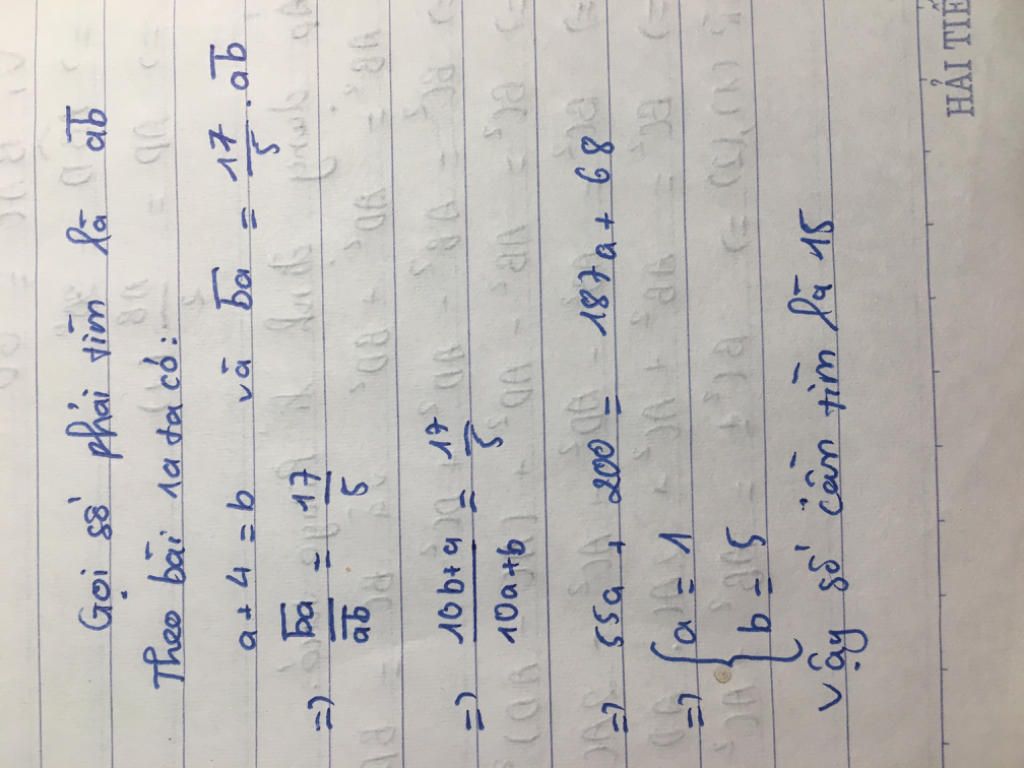 Gọi số phải tìm là ab̅
Theo bài ra ta có:
a + 4 = b và b̅a̅ = 17/5 . a̅b̅
=> b̅a̅/a̅b̅ = 17/5
=> (10b+a)/(10a+b) = 17/5
=> 55a + 200 = 187a + 68
=> { a = 1
b = 5
Vậy số cần tìm là 15
HẢI TIẾ